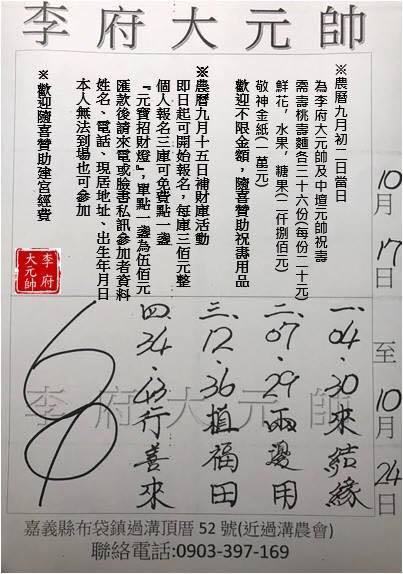 李府大元帥
※農曆九月初二日當日
為李府大元帥及中壇元帥祝壽
需壽桃壽麵各三十六份(每份二十元)
鮮花，水果，糖果(二仟捌佰元)
敬神金紙(一萬元)
歡迎不限金額，隨喜贊助祝壽用品
※農曆九月十五日補財庫活動
即日起可開始報名，每庫三佰元整
個人報名三庫可免費點一盞
『元寶招財燈』，單點一盞為伍佰元
匯款後請來電或臉書私訊參加者資料
姓名、電話、現居地址、出生年月日
本人無法到場也可參加
※歡迎隨喜贊助建宮經費
李府
大元帥
10月17日至10月24日
一.04.30來結緣
二.07.29兩邊用
三.12.36植福田
四.34.43行善來
李府大元帥
嘉義縣布袋鎮過溝頂厝52號(近過溝農會)
聯絡電話:0903-397-169